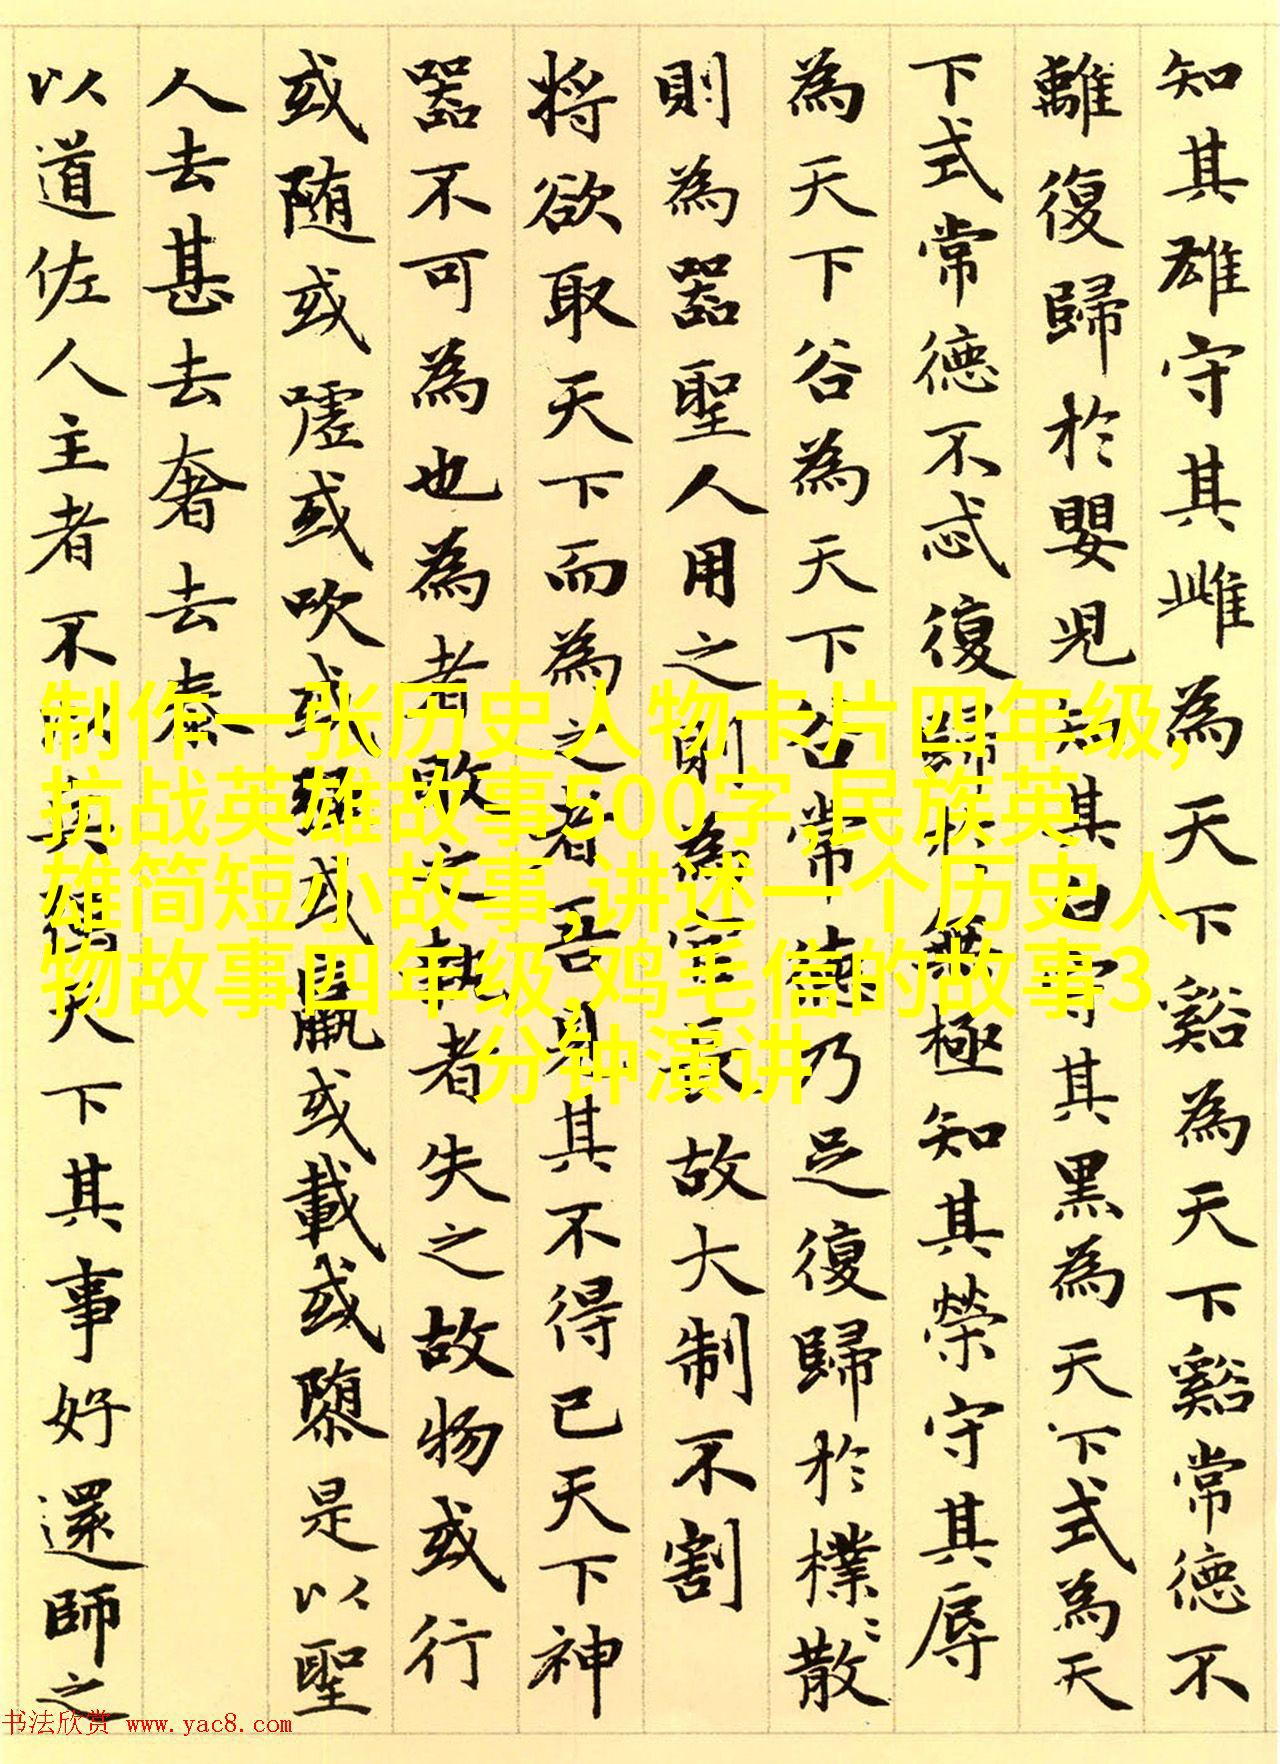 知其雄守其雌為天下谿為天下谿常德不
離復歸於嬰兒知其白守其黑為天下式為天
下式常德不忒復歸於無極知其榮守其辱
為天下谷為天下谷常德乃足復歸於樸〻散
則為器聖人用之則為官長故大制不割
将欲取天下而為之者吾見其不得已天下神
器不可為也為者敗之執者失之故物或行
或随或嘘或吹或强或羸或載或隳是以聖
人去甚去奢去泰
以道佐人主者不以兵强天下其事好還師之
制作一张历史人物卡片四年级,
抗战英雄故事500字,民族英
雄简短小故事,讲述一个历史人
物故事四年级,鸡毛信的故事3
分钟演讲
书法欣赏 www.yac8.com